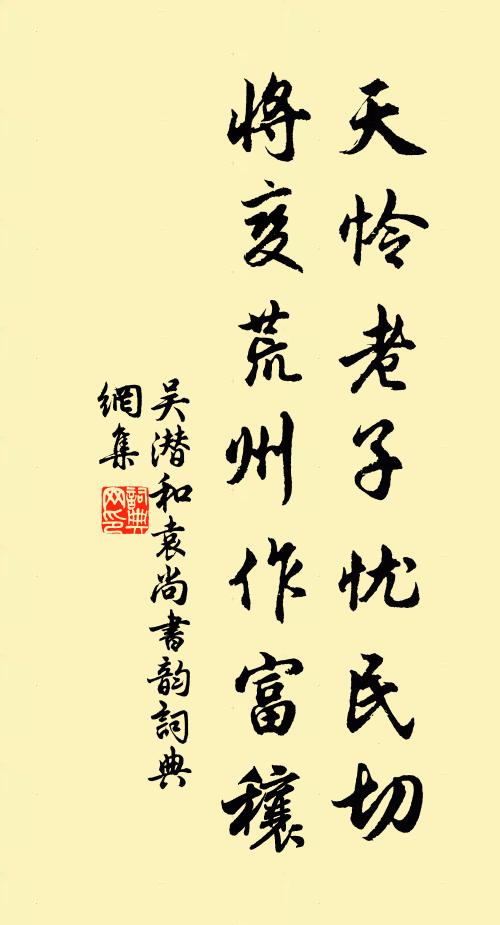 天怜老子忧民切
将变荒州作富穰
吴潜和袁尚书韵詞典
網集
詞典网印